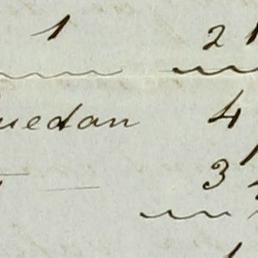 1 2
uedan 4
3